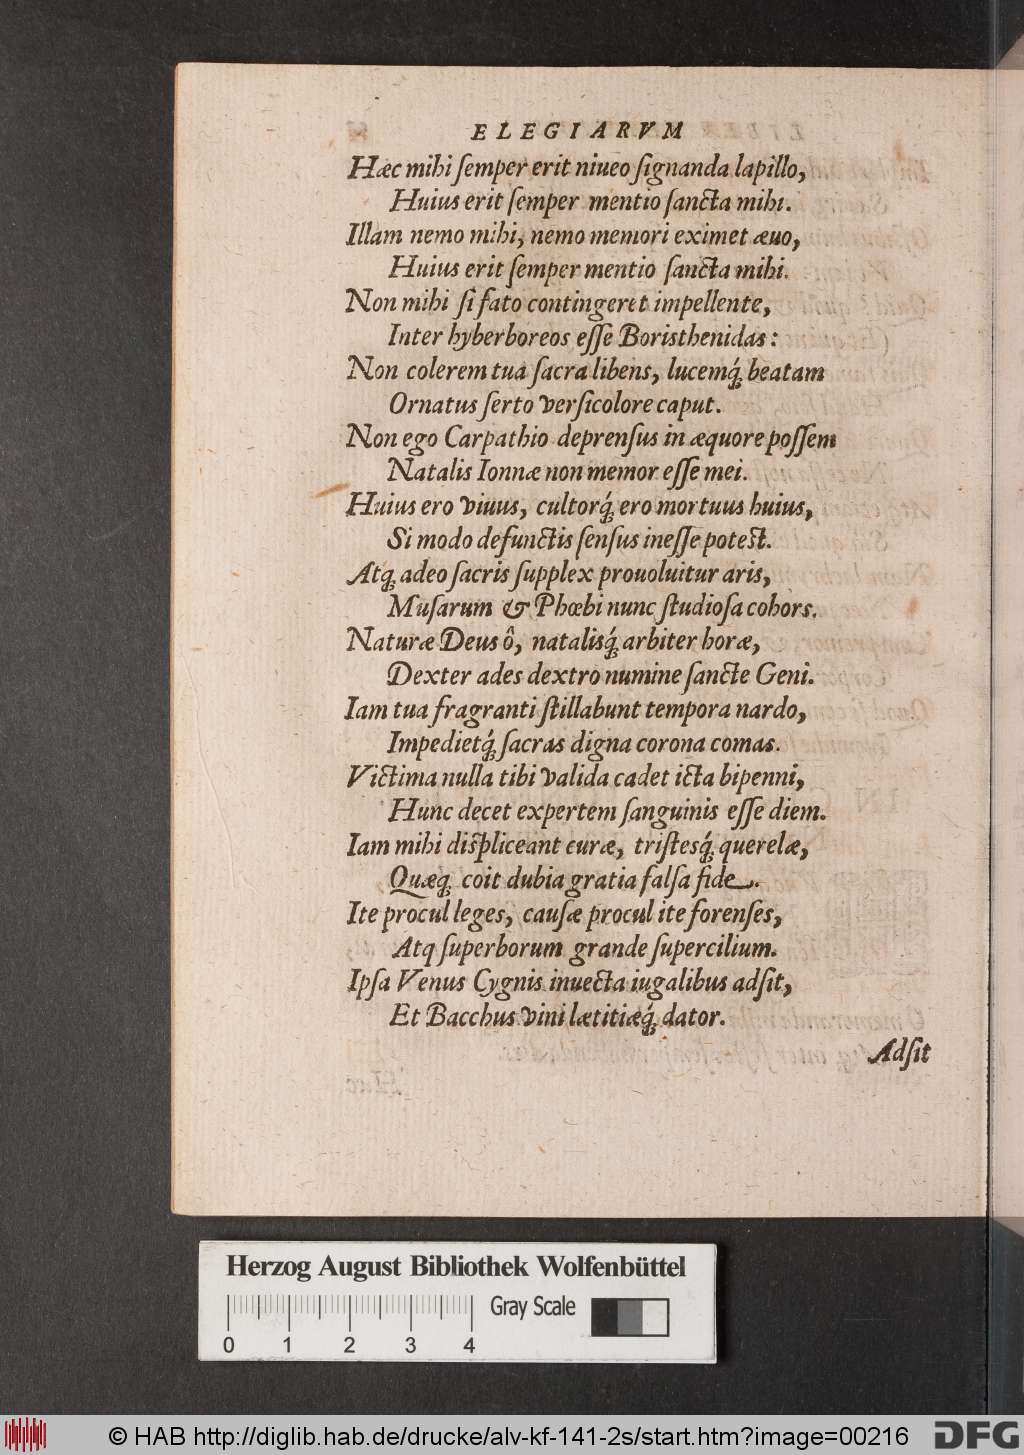 ELEGIARVM
Hæc mihi ſemper erit niueo ſignanda lapillo,
Huius erit ſemper mentio ſancta mihi.
Illam nemo mihi, nemo memori eximet æuo,
Huius erit ſemper mentio ſancta mihi.
Non mihi ſi fato contingeret impellente,
Inter hyberboreos eſſe Boristhenidas:
Non colerem tua ſacra libens, lucemq́; beatam
Ornatus ſerto verſicolore caput.
Non ego Carpathio deprenſus in æquore poſſem
Natalis Ionnæ non memor eſſe mei.
Huius ero viuus, cultorq́; ero mortuus huius,
Si modo defunctis ſenſus ineſſe potest.
Atq; adeo ſacris ſupplex prouoluitur aris,
Muſarum & Phœbi nunc ſtudioſa cohors.
Naturæ Deus ô, natalisq́; arbiter horæ,
Dexter ades dextro numine ſancte Geni.
Iam tua fragranti ſtillabunt tempora nardo,
Impedietq́; ſacras digna corona comas.
Victima nulla tibi valida cadet icta bipenni,
Hunc decet expertem ſanguinis eſſe diem.
Iam mihi diſpliceant curæ, triſtesq́; querelæ,
Quæq; coit dubia gratia falſa fide.
Ite procul leges, cauſæ procul ite forenſes,
Atq; ſuperborum grande ſupercilium.
Ipſa Venus Cygnis inuecta iugalibus adſit,
Et Bacchus vini lætitiæq́; dator.
Adſit
Herzog August Bibliothek Wolfenbüttel
Gray Scale
0 1 2 3 4
© HAB http://diglib.hab.de/drucke/alv-kf-141-2s/start.htm?image=00216
DFG